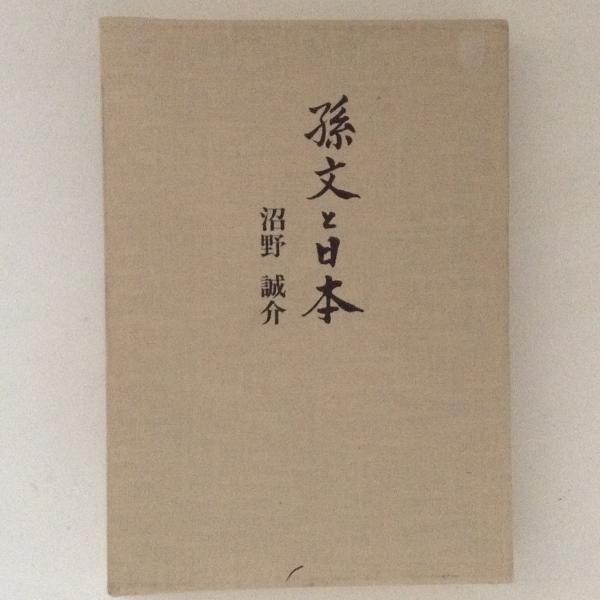 孫文と日本
沼野 誠介